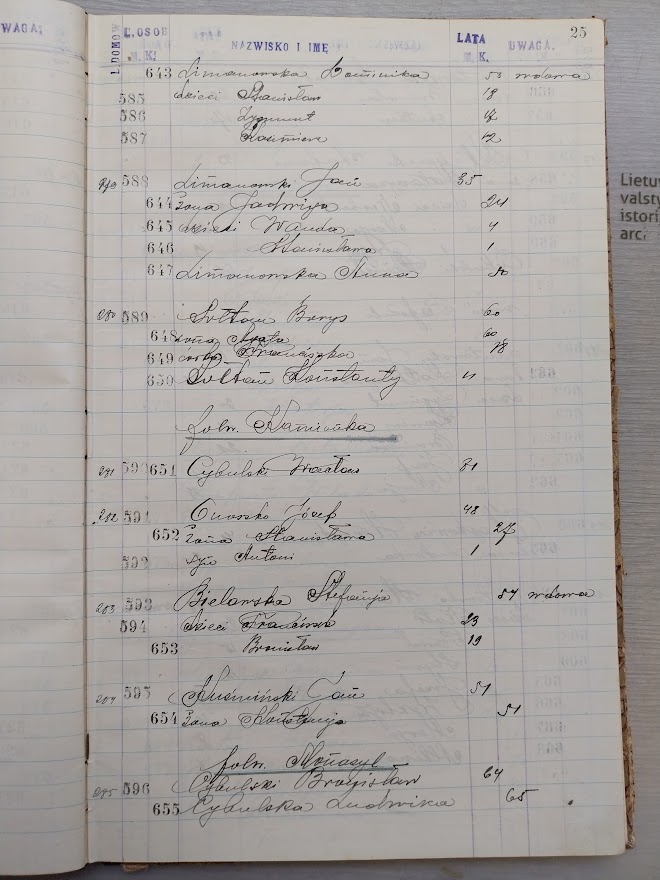 WAGA:
25
L. DOMÓW L. OSÓB NAZWISKO I IMĘ LATA UWAGA.
M. K. M. K.
643 Limanowska Dominika 50 wdowa
585 dzieci Stanisław 18
586 Zygmunt 17
587 Kazimierz 12
588 Limanowski Jan 35
644 żona Jadwiga 24
645 dzieci Wanda 4
646 Stanisława 1
647 Limanowska Anna
280 589 Sołtan Borys 60
648 żona Agata 60
649 córka Franciszka 18
650 Sołtan Konstanty
folw. Kamionka
281 590 651 Cybulski Wacław 81
282 591 Józef 48
652 żona Stanisława 27
592 syn Antoni 1
283 593 Bielawska Stefanja 57 wdowa
594 dzieci Franciszek 23
653 Bronisław 19
284 595 Kuśmiński Jan 51
654 żona Konstancja 51
folw.
285 596 Cybulski Bronisław 64
655 Cybulska Ludwika 65
Lietuv
valsty
istori
arc.